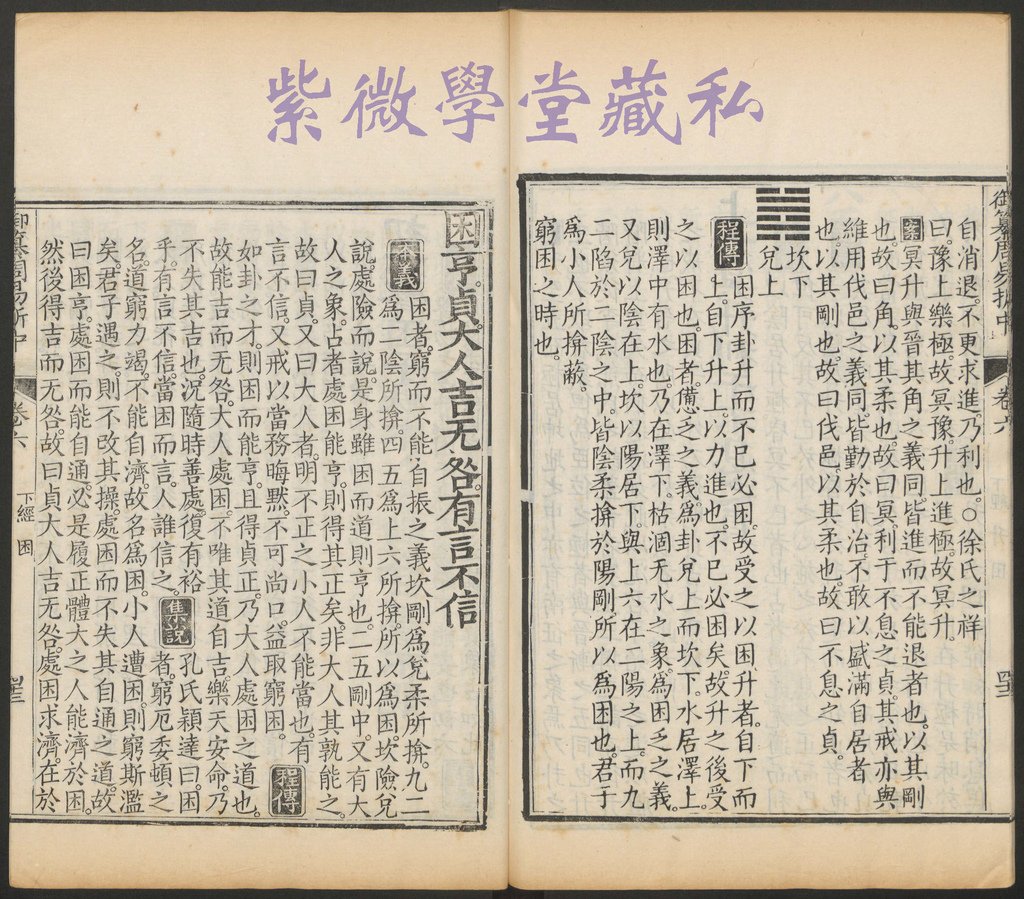 紫微學堂藏私
御纂周易折中
卷六
自消退。不更求進。乃利也。○徐氏之祥
曰。豫上樂極。故冥豫。升上進極。故冥升。
案冥升與晉其角之義同。皆進而不能退者也。以其剛
也。故曰角。以其柔也。故曰冥。利于不息之貞。其戒亦與
維用伐邑之義同。皆勤於自治。不敢以盛滿自居者
也。以其剛也。故曰伐邑。以其柔也。故曰不息之貞。
坎下
兌上
程傳困序卦升而不已必困。故受之以困。升者。自下而
上。自下升上。以力進也。不已必困矣。故升之後受
之以困也。困者。憊乏之義。爲卦兌上而坎下。水居澤上。
則澤中有水也。乃在澤下。枯涸无水之象。爲困乏之義。
又兌以陰在上。坎以陽居下。與上六在二陽之上。而九
二陷於二陰之中。皆陰柔揜於陽剛。所以爲困也。君子
爲小人所揜蔽。
窮困之時也。
困亨。貞大人吉无咎。有言不信
本義困者。窮而不能自振之義。坎剛爲兌柔所揜。九二
爲二陰所揜。四五爲上六所揜。所以爲困。坎險兌
說。處險而說。是身雖困而道則亨也。二五剛中。又有大
人之象。占者處困能亨。則得其正矣。非大人其孰能之。
故曰貞。又曰大人者。明不正之小人不能當也。有
言不信。又戒以當務晦默。不可尚口。益取窮困。程傳
如卦之才。則困而能亨。且得貞正。乃大人處困之道也。
故能吉而无咎。大人處困。不唯其道自吉。樂天安命。乃
不失其吉也。況隨時善處。復有裕
乎。有言不信。當困而言。人誰信之。集說孔氏穎達曰。困
者。窮厄委頓之
名。道窮力竭。不能自濟。故名爲困。小人遭困。則窮斯濫
矣。君子遇之。則不改其操。處困而不失其自通之道。故
曰困亨。處困而能自通。必是履正體大之人。能濟於困。
然後得吉而无咎。故曰貞大人吉无咎。處困求濟。在於
卷六
下經 困